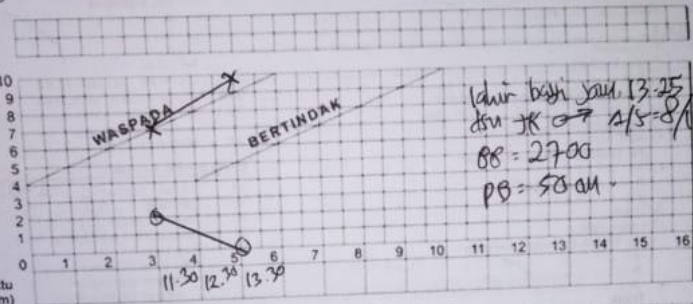 10
9
8
7
6
5
4
3
2
1
0
WASPADA
BERTINDAK
lahir bayi jam 13.25
JK ♂ A/S = 8/
BB = 2700
PB = 50 cm.
1 2 3 4 5 6 7 8 9 10 11 12 13 14 15 16
11.30 12.30 13.30
tu
m)